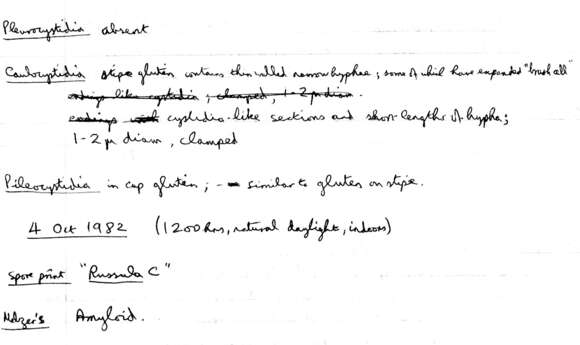 Pleurocystidia absent
Caulocystidia stipe gluten contains thin walled narrow hyphae; some of which have expanded
endings like cystidia; clamped, 1-2µ diam.
endings cystidia-like sections and short lengths of hypha;
1-2µ diam, clamped
Pileocystidia in cap gluten; - similar to gluten on stipe.
4 Oct 1982 (1200 hrs, natural daylight, indoors)
Spore print "Russula C"
Melzer's Amyloid.